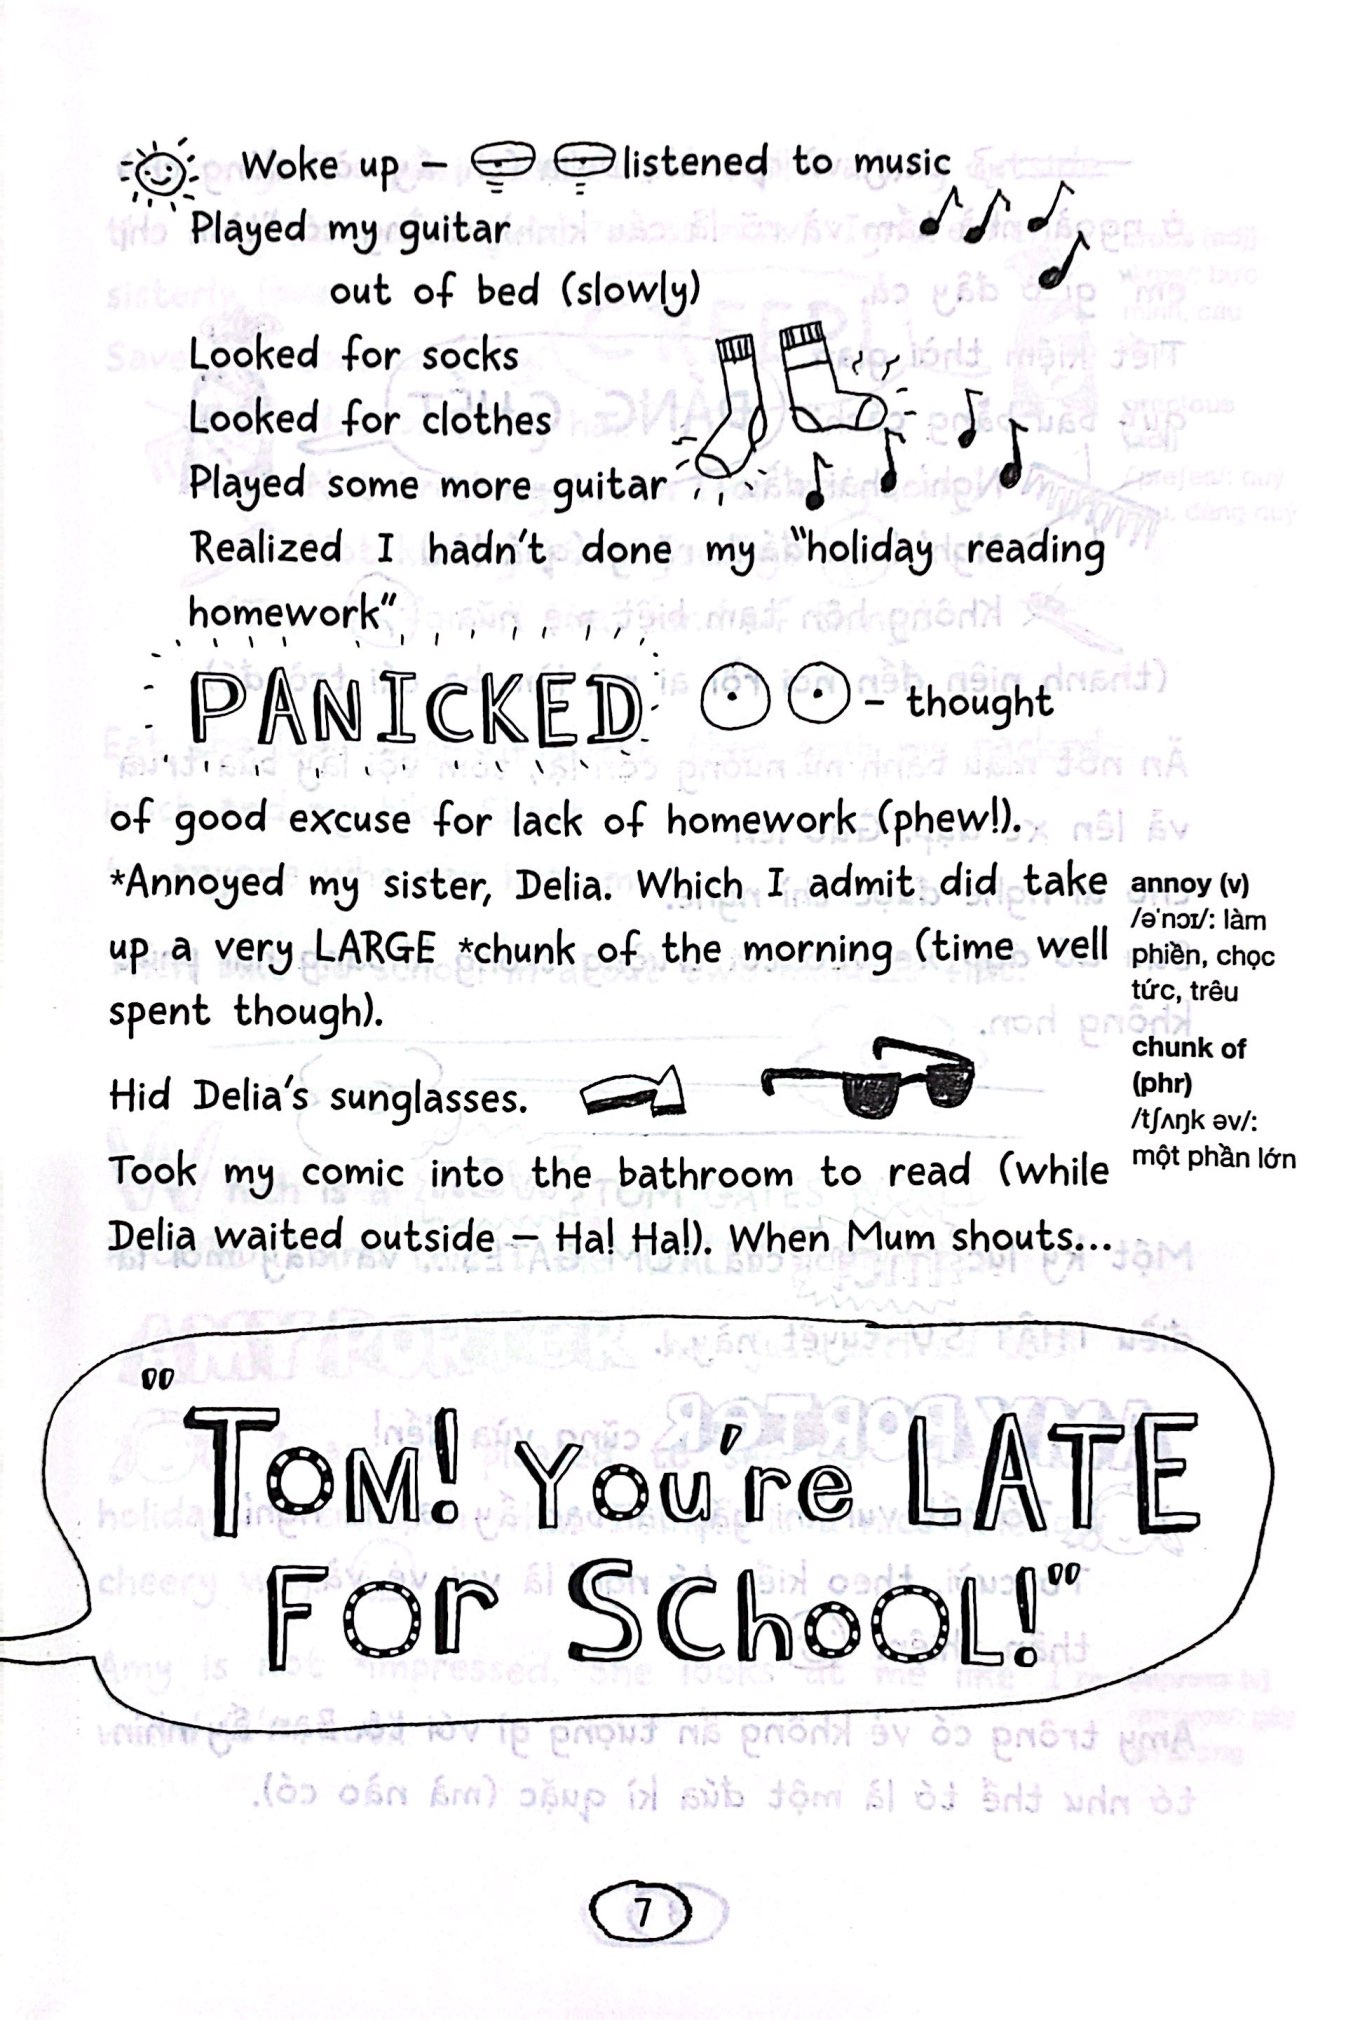 Woke up – listened to music
Played my guitar
out of bed (slowly)
Looked for socks
Looked for clothes
Played some more guitar
Realized I hadn't done my "holiday reading
homework"
PANICKED – thought
of good excuse for lack of homework (phew!).
*Annoyed my sister, Delia. Which I admit did take
up a very LARGE *chunk of the morning (time well
spent though).
Hid Delia's sunglasses.
Took my comic into the bathroom to read (while
Delia waited outside – Ha! Ha!). When Mum shouts...
annoy (v)
/əˈnɔɪ/: làm
phiền, chọc
tức, trêu
chunk of
(phr)
/tʃʌŋk əv/:
một phần lớn
"TOM! You're LATE
For SchooL!"
7